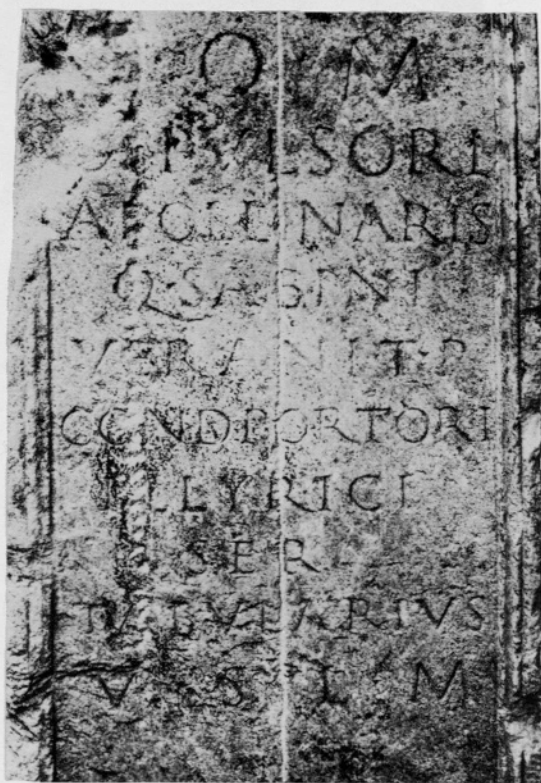 O M
DEPVLSORI
APOLLINARIS
Q SABINI
VERANI T·P
COND PORTORI
ILLYRICI
SER
TABVLARIVS
V S L M